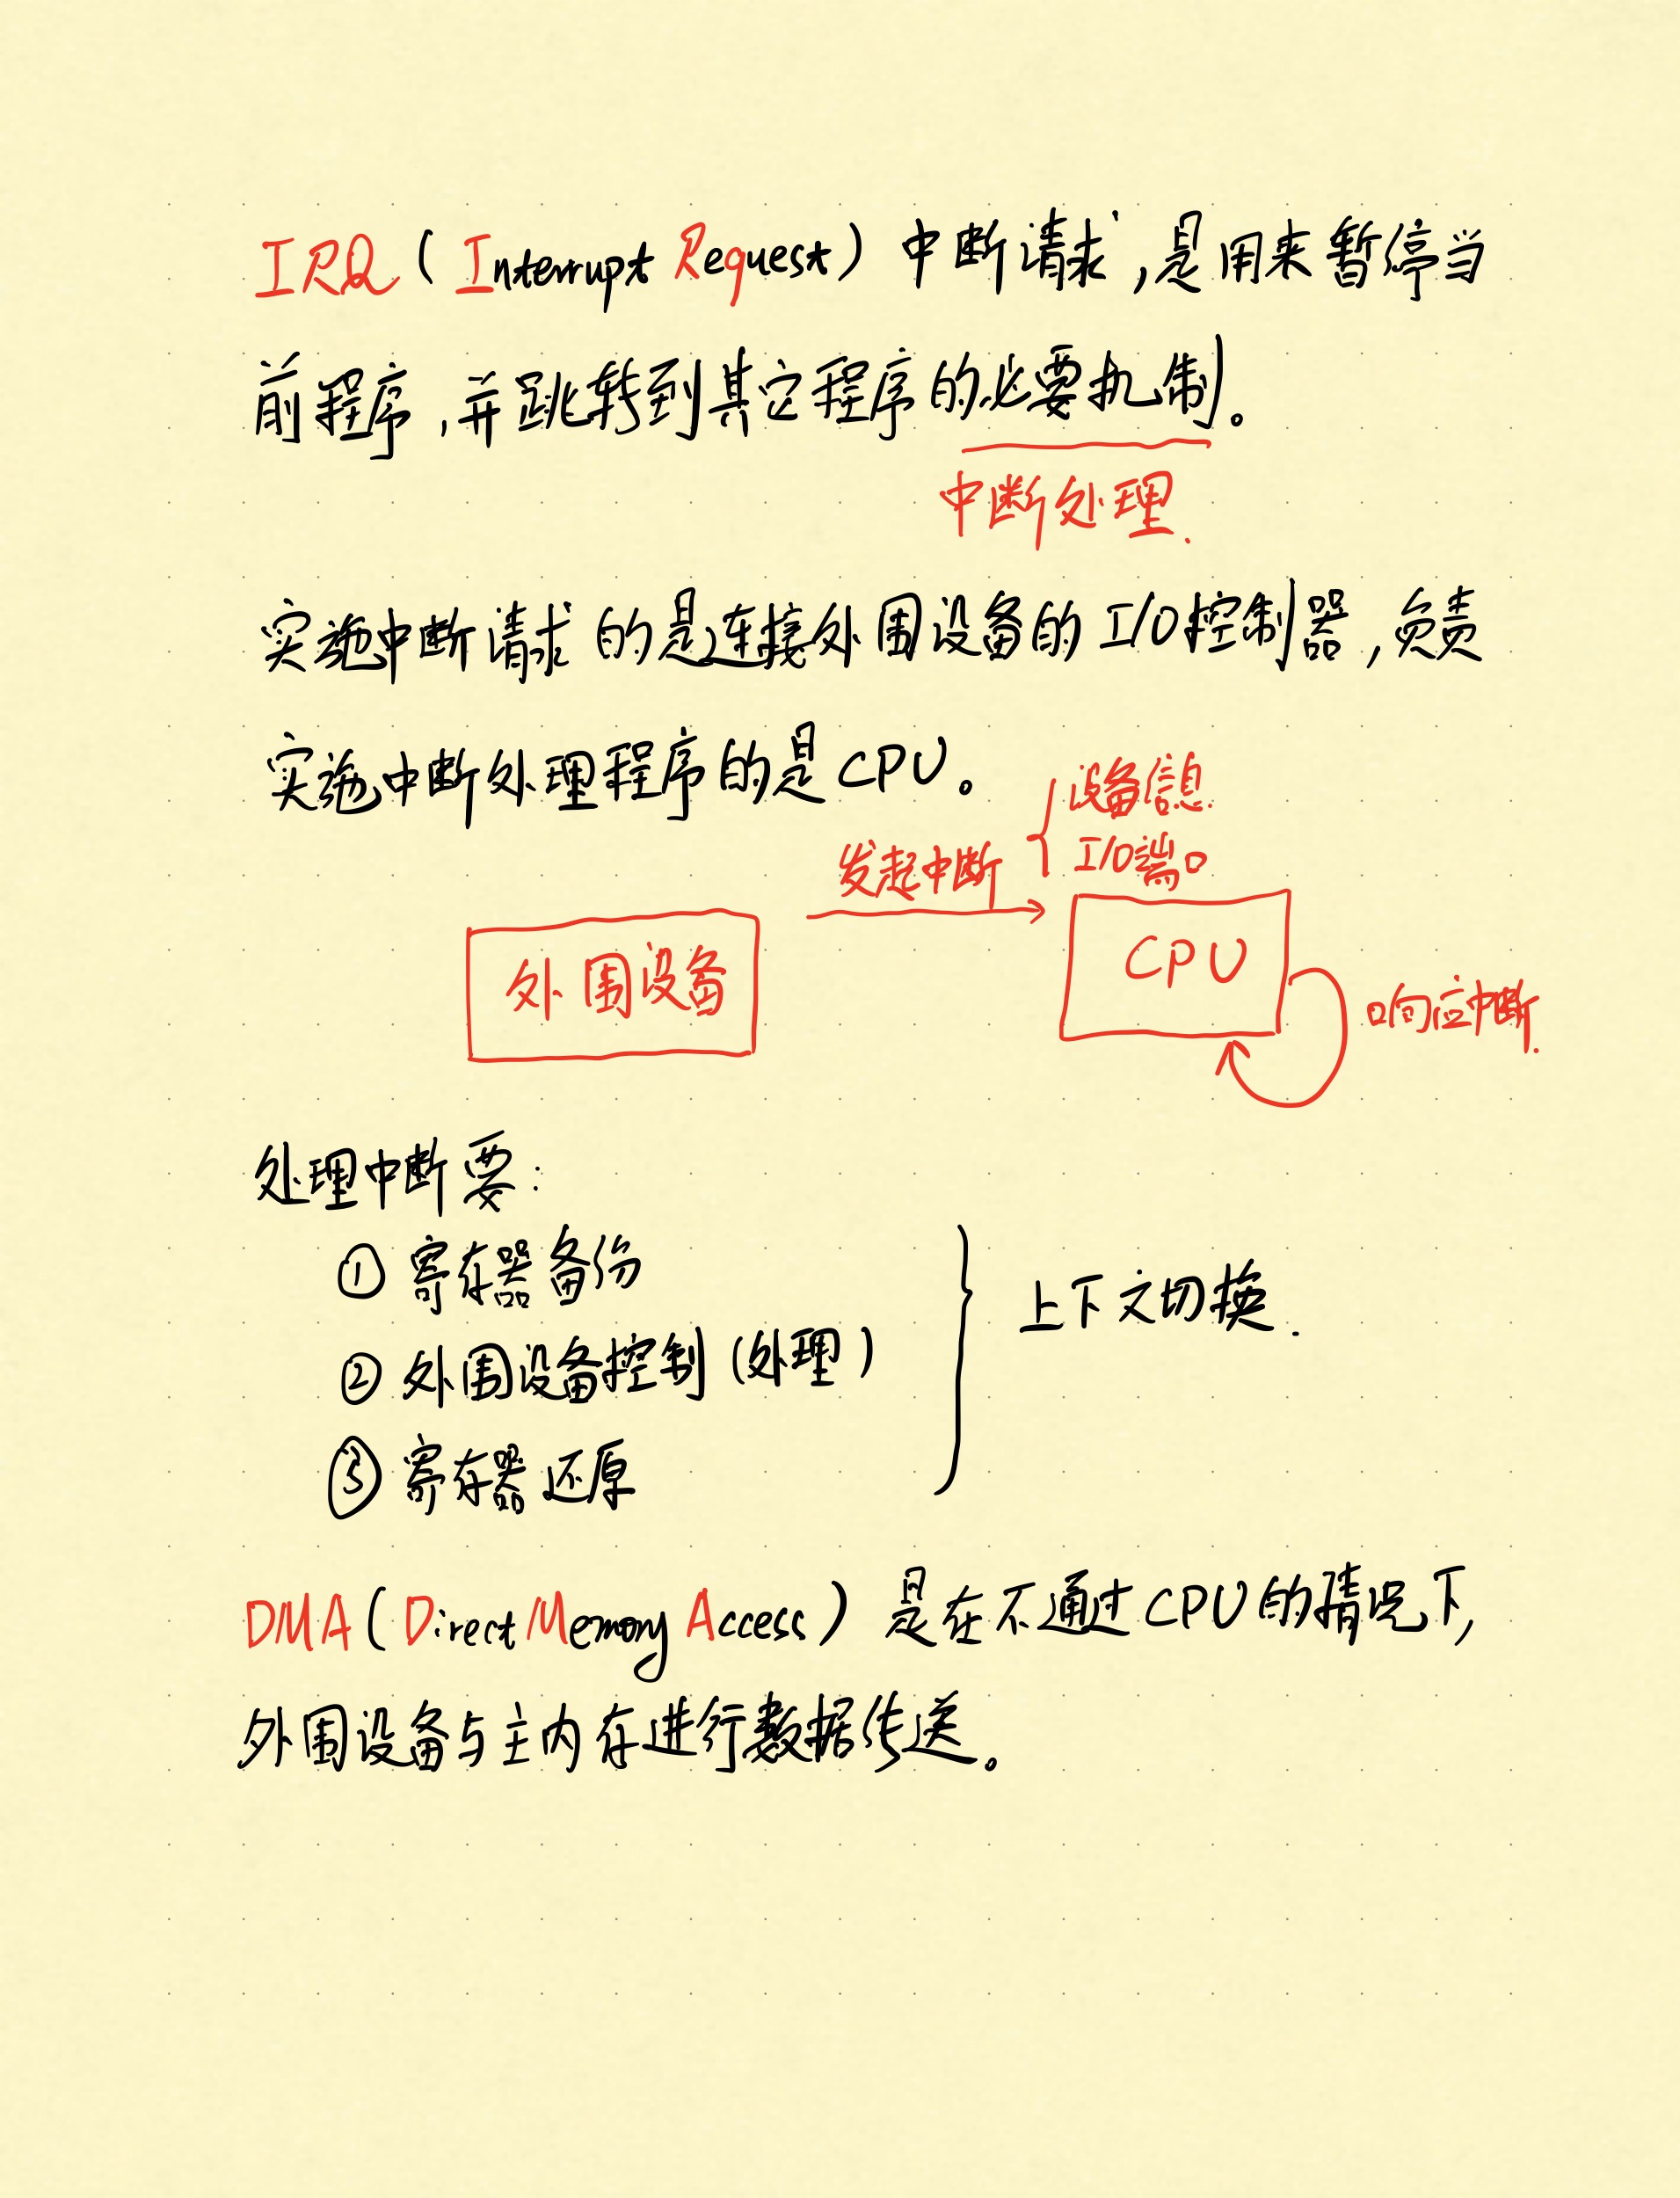 IRQ（Interrupt Request）中断请求，是用来暂停当
前程序，并跳转到其它程序的必要机制。
中断处理.
实施中断请求的是连接外围设备的I/O控制器，负责
实施中断处理程序的是CPU。
设备信息.
I/O端口
发起中断
外围设备
CPU
响应中断.
处理中断要：
① 寄存器备份
② 外围设备控制（处理）
③ 寄存器还原
上下文切换.
DMA（Direct Memory Access）是在不通过CPU的情况下，
外围设备与主内存进行数据传送。